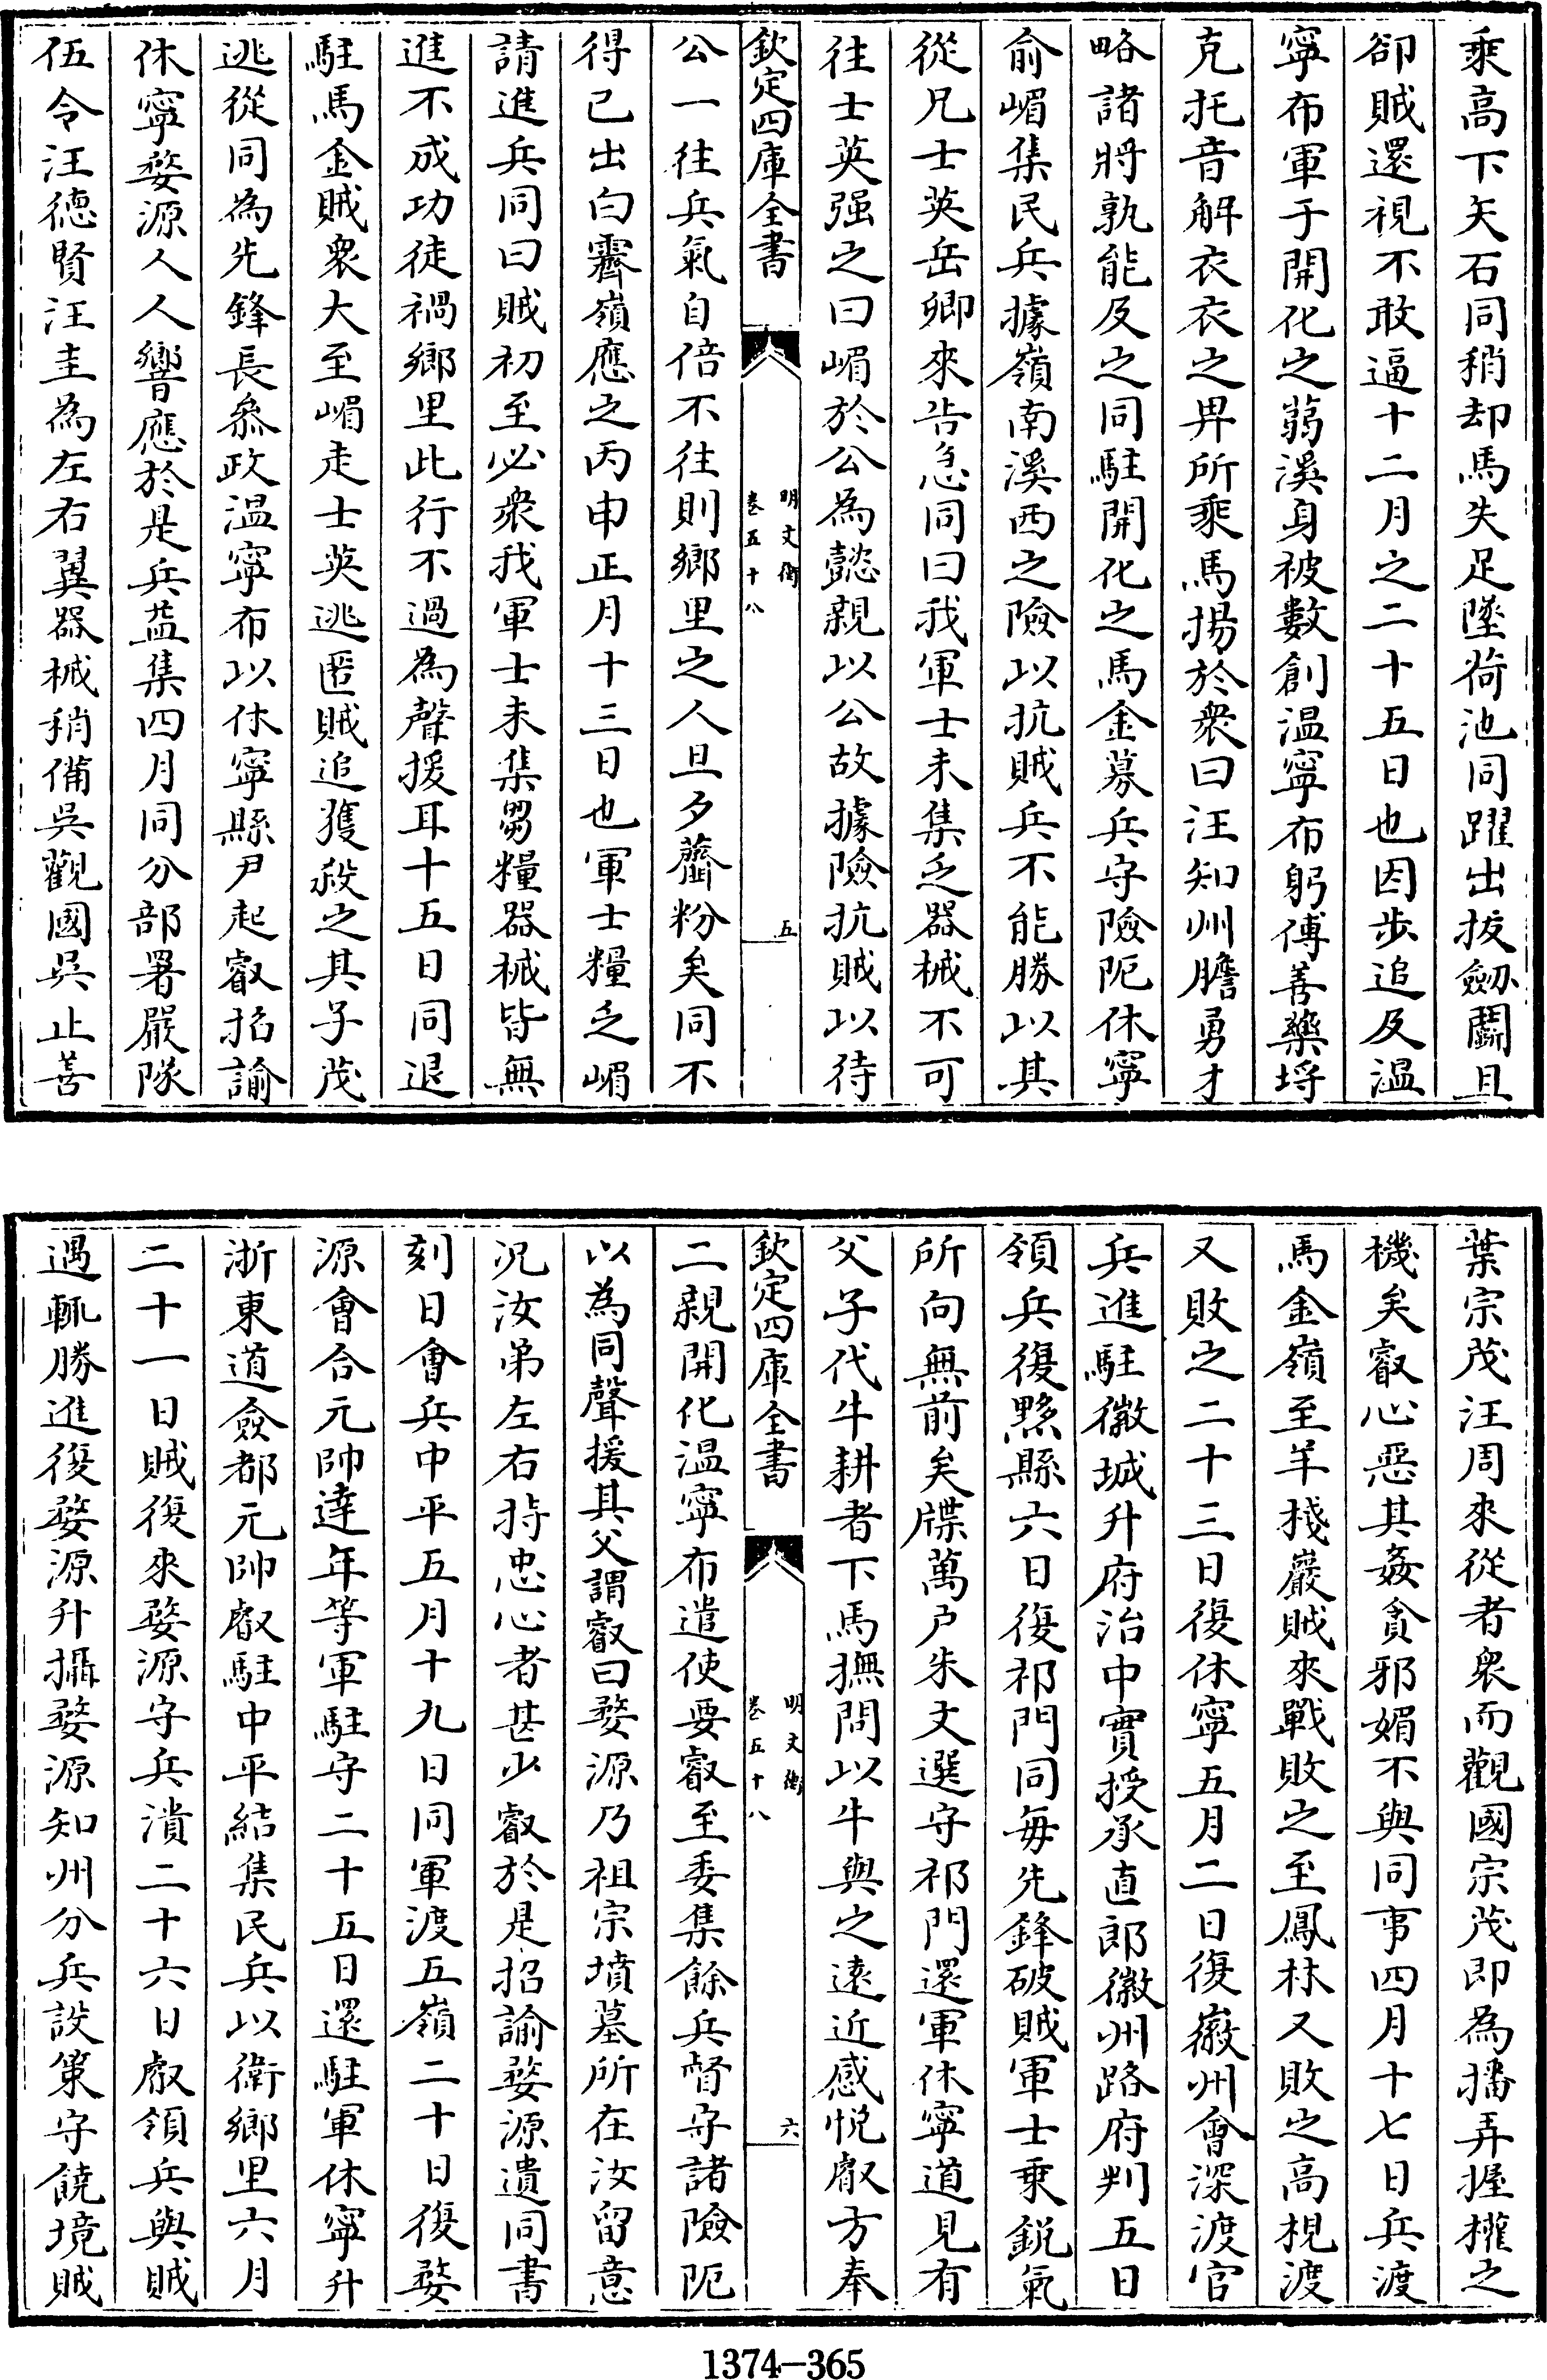 乘高下矢石同稍却馬失足墜荷池同躍出拔劒鬭且
卻賊還視不敢逼十二月之二十五日也因步追及温
寧布軍于開化之蒻溪身被數創温寧布躬傅善藥埓
克托音解衣衣之畀所乘馬揚於衆曰汪知州膽勇才
略諸將孰能及之同駐開化之馬金募兵守險阨休寧
俞嵋集民兵據嶺南溪西之險以抗賊兵不能勝以其
從兄士英岳卿來告急同曰我軍士未集乏器械不可
往士英强之曰嵋於公為懿親以公故據險抗賊以待
欽定四庫全書
明文衡
卷五十八
五
公一往兵氣自倍不往則鄉里之人旦夕虀粉矣同不
得已出白霽嶺應之丙申正月十三日也軍士糧乏嵋
請進兵同曰賊初至必衆我軍士未集芻糧器械皆無
進不成功徒禍鄉里此行不過為聲援耳十五日同退
駐馬金賊衆大至嵋走士英逃匿賊追獲殺之其子茂
逃從同為先鋒長叅政温寧布以休寧縣尹起叡招諭
休寧婺源人人響應於是兵益集四月同分部署嚴隊
伍令汪德賢汪圭為左右翼器械稍備吳觀國吳止善
葉宗茂汪周來從者衆而觀國宗茂即為播弄握權之
機矣叡心惡其姦貪邪媚不與同事四月十七日兵渡
馬金嶺至羊棧巖賊來戰敗之至鳳林又敗之高梘渡
又敗之二十三日復休寧五月二日復徽州會深渡官
兵進駐徽城升府治中實授承直郎徽州路府判五日
領兵復黟縣六日復祁門同毎先鋒破賊軍士乘鋭氣
所向無前矣牒萬户朱文選守祁門還軍休寧道見有
父子代牛耕者下馬撫問以牛與之遠近感悦叡方奉
欽定四庫全書
明文衡
卷五十八
六
二親開化温寧布遣使要叡至委集餘兵督守諸險阨
以為同聲援其父謂叡曰婺源乃祖宗墳墓所在汝留意
況汝弟左右持忠心者甚少叡於是招諭婺源遺同書
刻日會兵中平五月十九日同軍渡五嶺二十日復婺
源會合元帥達年等軍駐守二十五日還駐軍休寧升
浙東道僉都元帥叡駐中平結集民兵以衛鄉里六月
二十一日賊復來婺源守兵潰二十六日叡領兵與賊
遇輒勝進復婺源升攝婺源知州分兵設策守饒境賊
1374-365